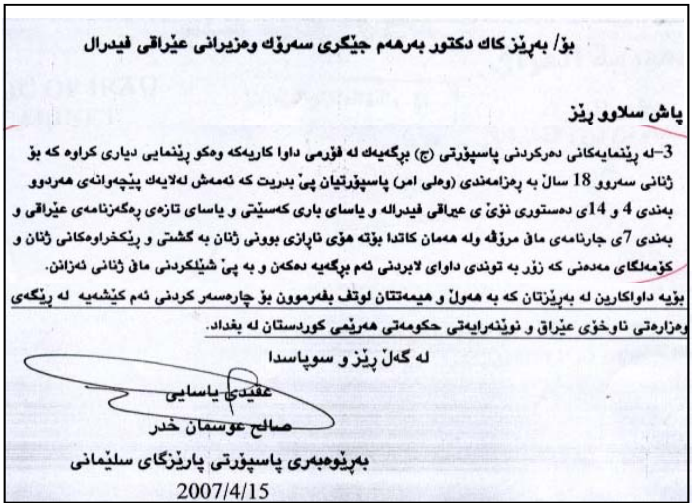 بۆ/ بەڕێز کاك دکتور بەرهەم جێگری سەرۆك وەزیرانی عێراقی فیدرال
پاش سلاوو ڕێز
3-لە ڕێنمایەکانی دەرکردنی پاسپۆرتی (ج) بڕگەیەك لە فۆرمی داوا کاریەکە وەکو ڕێنمایی دیاری کراوە کە بۆ
ژنانی سەروو 18 ساڵ بە ڕەزامەندی (وەلی امر) پاسپۆرتیان پێ بدریت کە ئەمەش لەلایەك پێچەوانەی هەردوو
بەندی 4 و 14ی دەستوری نۆێ ی عیراقی فیدرالە و یاسای باری کەسێتی و یاسای تازەی ڕەگەزنامەی عێراقی و
بەندی 7ی جارنامەی مافی مرۆڤە ولە هەمان کاتدا بۆتە هۆی ناڕازی بوونی ژنان بە گشتی و ڕێکخراوەکانی ژنان و
کۆمەلگای مەدەنی کە زۆر بە توندی داوای لابردنی ئەم بڕگەیە دەکەن و بە پێ شێلکردنی مافی ژنانی ئەزانن.
بۆیە داواکارین لە بەڕێزتان کە بە هەوڵ و هیمەتتان لوتف بفەرموون بۆ چارەسەر کردنی ئەم کێشەیە لە ڕێگەی
وەزارەتی ناوخۆی عێراق و نوێنەرایەتی حکومەتی هەرێمی کوردستان لە بغداد.
لە گەڵ ڕێز و سوپاسدا
عقیدی یاسایی
صالح عوسمان خدر
بەڕێوەبەری پاسپۆرتی پارێزگای سلێمانی
2007/4/15